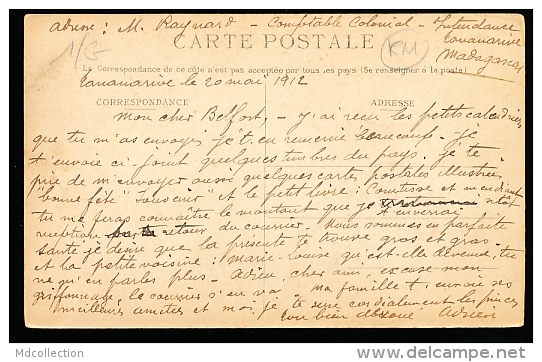 adresse : M. Raynard - Comptable Colonial - Intendance
Tananarive
Madagascar
1/5
KM
CARTE POSTALE
La Correspondance de ce côté n'est pas acceptée par tous les pays (Se renseigner à la poste)
Tananarive le 20 mai 1912
CORRESPONDANCE
ADRESSE
Mon cher Belfort, - J'ai reçu les petits calendriers
que tu m'as envoyés je t'en remercie beaucoup - Je
t'envoie ci-joint quelques timbres du pays, je te
prie de m'envoyer aussi quelques cartes postales illustrées,
"bonne fête" "Souvenir" et le petit livre : Comtesse et mendiant
tu me feras connaître le montant que je t'enverrai sitôt
réception retour du courrier. Nous sommes en parfaite
santé je désire que la présente te trouve gros et gras -
et la petite voisine : Marie-Louise qu'est-elle devenue, tu
ne m'en parles plus - Adieu, cher ami, excuse mon
griffonnage, le courrier s'en va ma famille t'envoie ses
meilleures amitiés et moi je te serre cordialement les pinces
ton bien dévoué Adrien
Mdcollection
http://www.delcampe.net